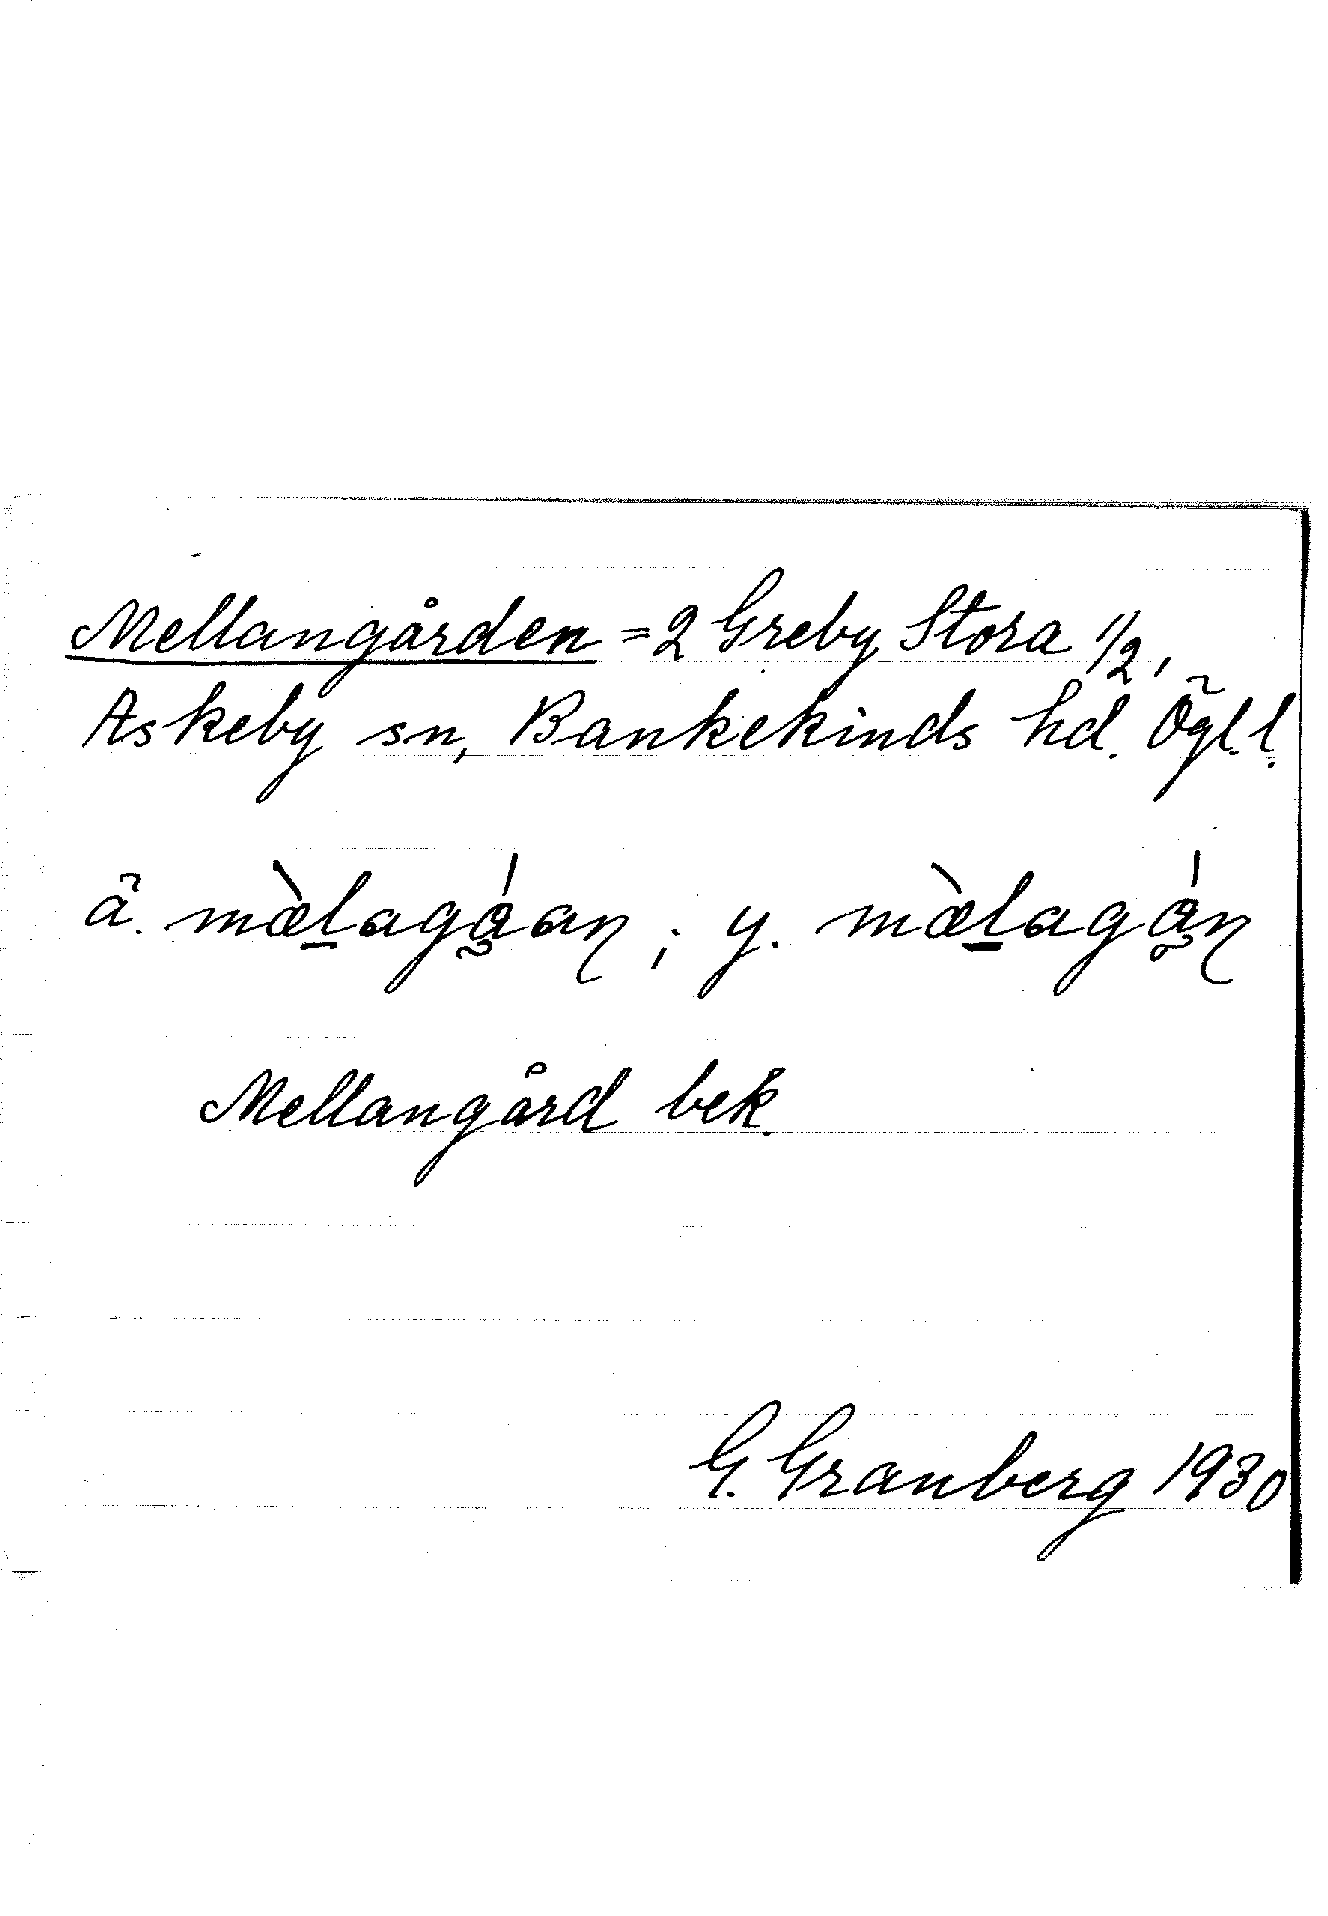 Mellangården = 2 Greby Stora 1/2,
Askeby sn, Bankekinds hd. Ögl.l.
ä. mὰlagáan ; y. mὰlagán
Mellangård bek.
G. Granberg 1930